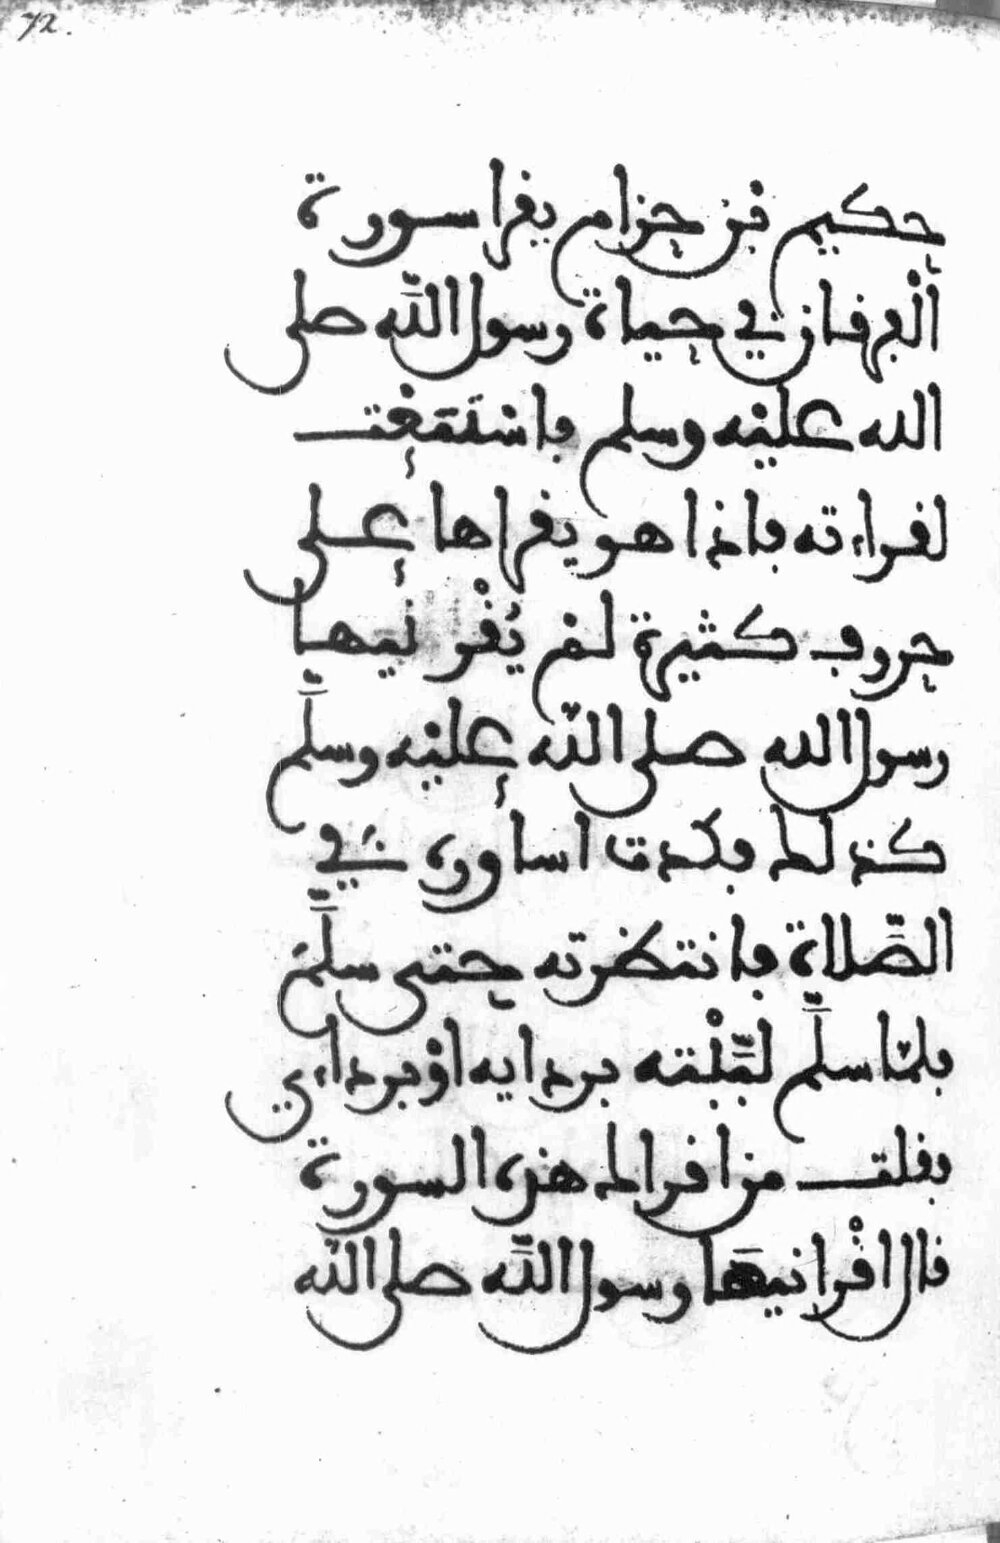 72.
حكيم بن حزام يقرا سورة
الفرقان في حياة رسول الله صلى
الله عليه وسلم فاستمعت
لقراءته فاذا هو يقراها على
حروف كثيرة لم يقرنيها
رسول الله صلى الله عليه وسلم
كذلك فكدت اساوره في
الصلاة فانتظرته حتى سلم
فلما سلم لببته بردايه او برداءي
فقلت من اقراك هذه السورة
قال اقرانيها رسول الله صلى الله